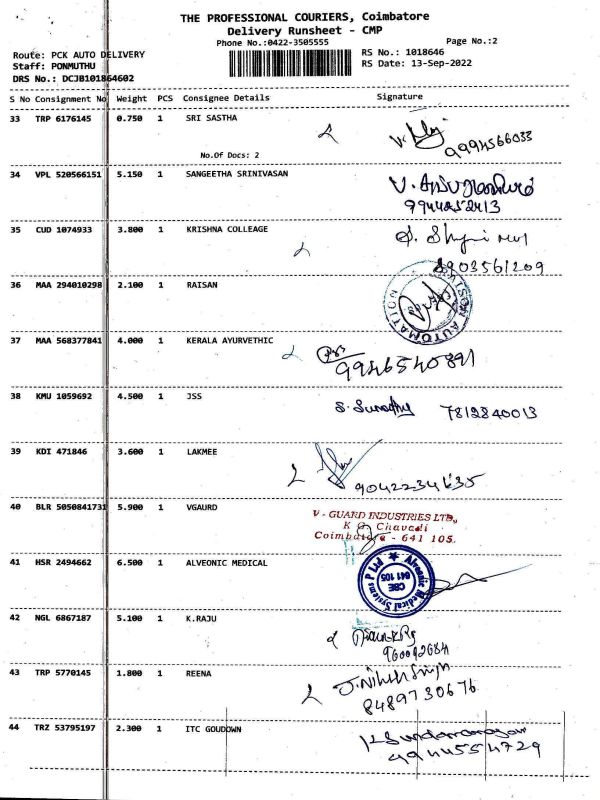 THE PROFESSIONAL COURIERS, Coimbatore
Delivery Runsheet - CMP
Phone No.:0422-3505555
Page No.:2
Route: PCK AUTO DELIVERY
RS No.: 1018646
Staff: PONMUTHU
RS Date: 13-Sep-2022
DRS No.: DCJB101864602
S No Consignment No Weight PCS Consignee Details Signature
33 TRP 6176145 0.750 1 SRI SASTHA
9994566033
No.Of Docs: 2
34 VPL 520566151 5.150 1 SANGEETHA SRINIVASAN
9944252413
35 CUD 1074933 3.800 1 KRISHNA COLLEAGE
8903561209
36 MAA 294010298 2.100 1 RAISAN
AUTOMATION
37 MAA 568377841 4.000 1 KERALA AYURVETHIC
9946540891
38 KMU 1059692 4.500 1 JSS
7812840013
39 KDI 471846 3.600 1 LAKMEE
40 BLR 5050841731 5.900 1 VGAURD
V - GUARD INDUSTRIES LTD.,
K G Chavadi
Coimbatore - 641 105.
41 HSR 2494662 6.500 1 ALVEONIC MEDICAL
Alveonic Medical Systems P Ltd
CBE
641 105
42 NGL 6867187 5.100 1 K.RAJU
43 TRP 5770145 1.800 1 REENA
8489730676
44 TRZ 53795197 2.300 1 ITC GOUDOWN
4944554729